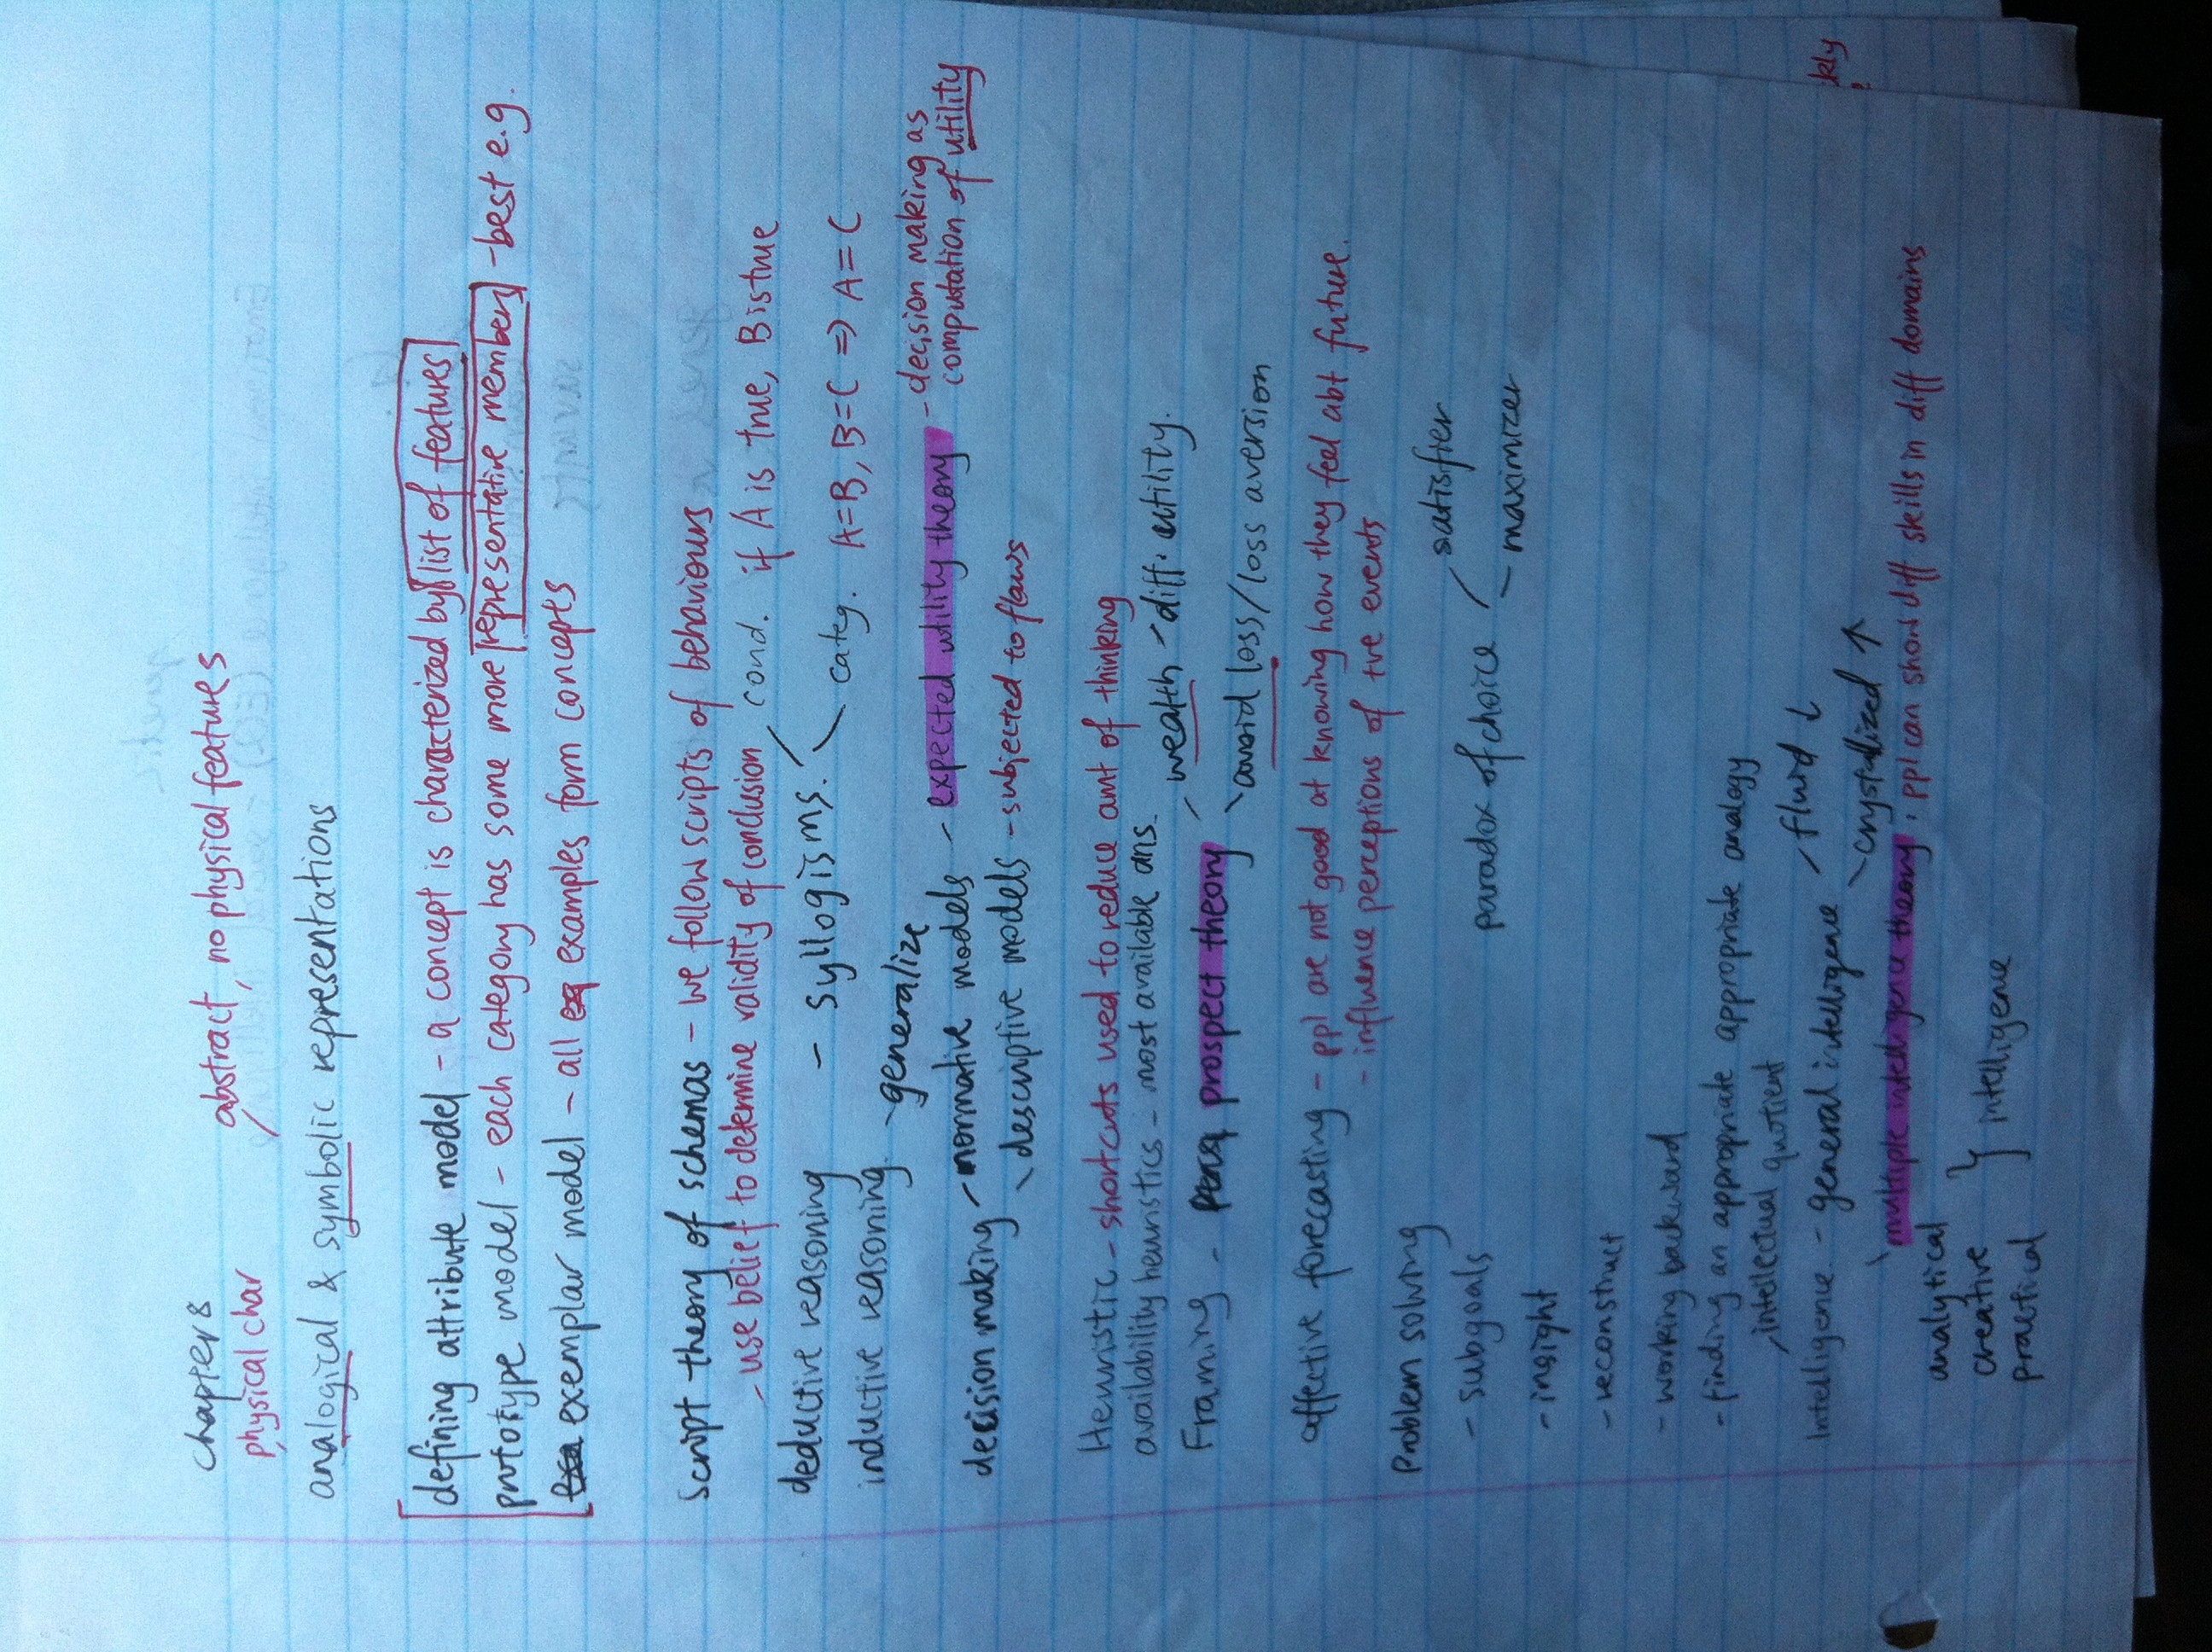 chapter 8
physical char abstract, no physical features
analogical & symbolic representations
defining attribute model - a concept is characterized by list of features
prototype model - each category has some more representative members - best e.g.
exemplar model - all examples form concepts
script theory of schemas - we follow scripts of behaviours
- use belief to determine validity of conclusion
deductive reasoning - syllogisms. cond. if A is true, B is true
categ. A=B, B=C => A=C
inductive reasoning - generalize
decision making - normative models - expected utility theory - decision making as
computation of utility
descriptive models - subjected to flaws
Heuristic - shortcuts used to reduce amt of thinking
availability heuristics - most available ans.
Framing - prospect theory wealth - diff. utility.
avoid loss/loss aversion
affective forecasting - ppl are not good at knowing how they feel abt future.
- influence perceptions of +ve events
Problem solving
- subgoals paradox of choice satisfier
- maximizer
- insight
- reconstruct
- working backward
- finding an appropriate appropriate analogy
intellectual quotient
Intelligence - general intelligence fluid ↓
crystallized ↑
multiple intelligence theory, ppl can show diff skills in diff domains
analytical
creative } intelligence
practical
kly